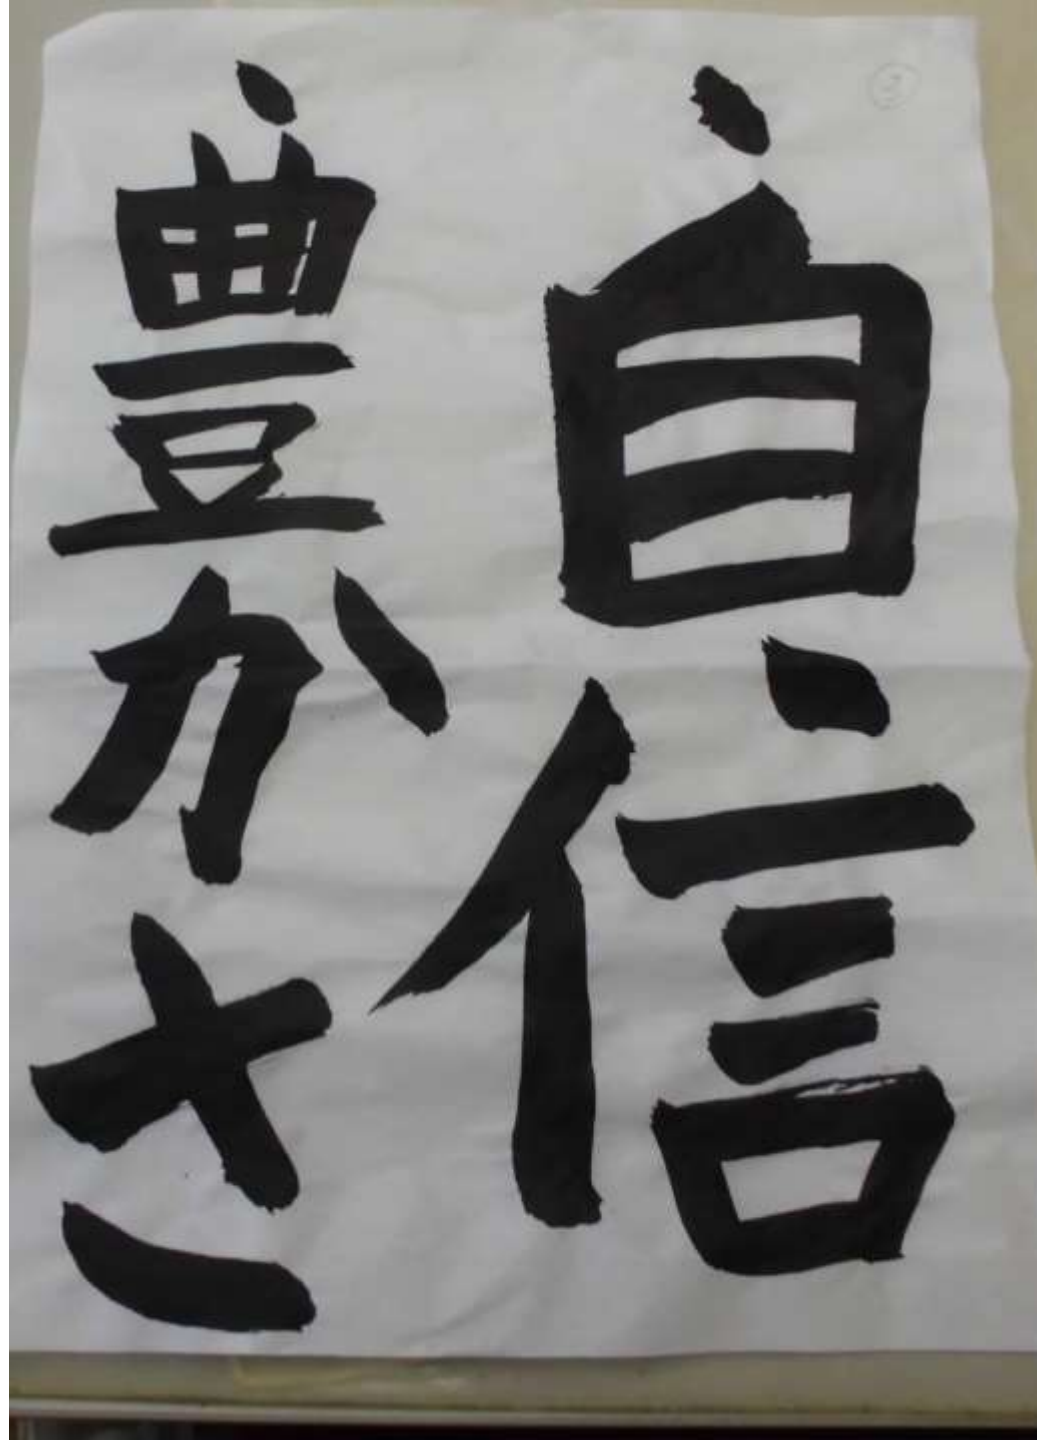 ③
・自信
・豊かさ